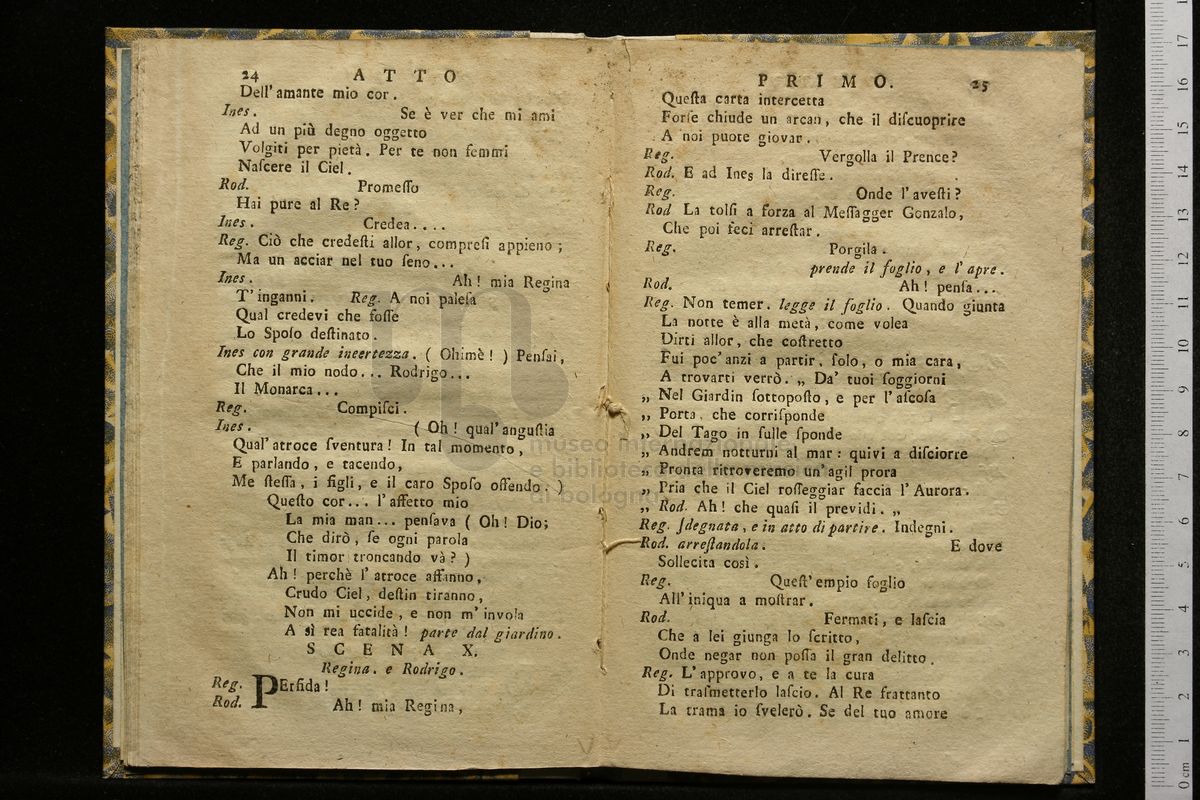 24 ATTO
Dell'amante mio cor.
Ines. Se è ver che mi ami
Ad un più degno oggetto
Volgiti per pietà. Per te non femmi
Naſcere il Ciel.
Rod. Promeſſo
Hai pure al Re?
Ines. Credea....
Reg. Ciò che credeſti allor, compreſi appieno;
Ma un acciar nel tuo ſeno...
Ines. Ah! mia Regina
T'inganni. Reg. A noi paleſa
Qual credevi che foſſe
Lo Spoſo deſtinato.
Ines con grande incertezza. (Ohimè!) Penſai,
Che il mio nodo... Rodrigo...
Il Monarca...
Reg. Compiſci.
Ines. (Oh! qual'anguſtia
Qual'atroce ſventura! In tal momento,
E parlando, e tacendo,
Me ſteſſa, i figli, e il caro Spoſo offendo.)
Queſto cor... l'affetto mio
La mia man... penſava (Oh! Dio;
Che dirò, ſe ogni parola
Il timor troncando và?)
Ah! perchè l'atroce affanno,
Crudo Ciel, deſtin tiranno,
Non mi uccide, e non m'invola
A sì rea fatalità! parte dal giardino.
SCENA X.
Regina. e Rodrigo.
Reg. PErfida!
Rod. Ah! mia Regina,
PRIMO. 25
Queſta carta intercetta
Forſe chiude un arcan, che il diſcuoprire
A noi puote giovar.
Reg. Vergolla il Prence?
Rod. E ad Ines la direſſe.
Reg. Onde l'aveſti?
Rod La tolſi a forza al Meſſagger Gonzalo,
Che poi feci arreſtar.
Reg. Porgila.
prende il foglio, e l'apre.
Rod. Ah! penſa...
Reg. Non temer. legge il foglio. Quando giunta
La notte è alla metà, come volea
Dirti allor, che coſtretto
Fui poc'anzi a partir, ſolo, o mia cara,
A trovarti verrò. „ Da' tuoi ſoggiorni
„ Nel Giardin ſottopoſto, e per l'aſcoſa
„ Porta, che corriſponde
„ Del Tago in ſulle ſponde
„ Andrem notturni al mar: quivi a diſciorre
„ Pronta ritroveremo un'agil prora
„ Pria che il Ciel roſſeggiar faccia l'Aurora.
„ Rod. Ah! che quaſi il previdi. „
Reg. ſdegnata, e in atto di partire. Indegni.
Rod. arreſtandola. E dove
Sollecita così.
Reg. Queſt'empio foglio
All'iniqua a moſtrar.
Rod. Fermati, e laſcia
Che a lei giunga lo ſcritto,
Onde negar non poſſa il gran delitto.
Reg. L'approvo, e a te la cura
Di traſmetterlo laſcio. Al Re frattanto
La trama io ſvelerò. Se del tuo amore
museo internazionale
e biblioteca della musica
di bologna
0 cm 1 2 3 4 5 6 7 8 9 10 11 12 13 14 15 16 17